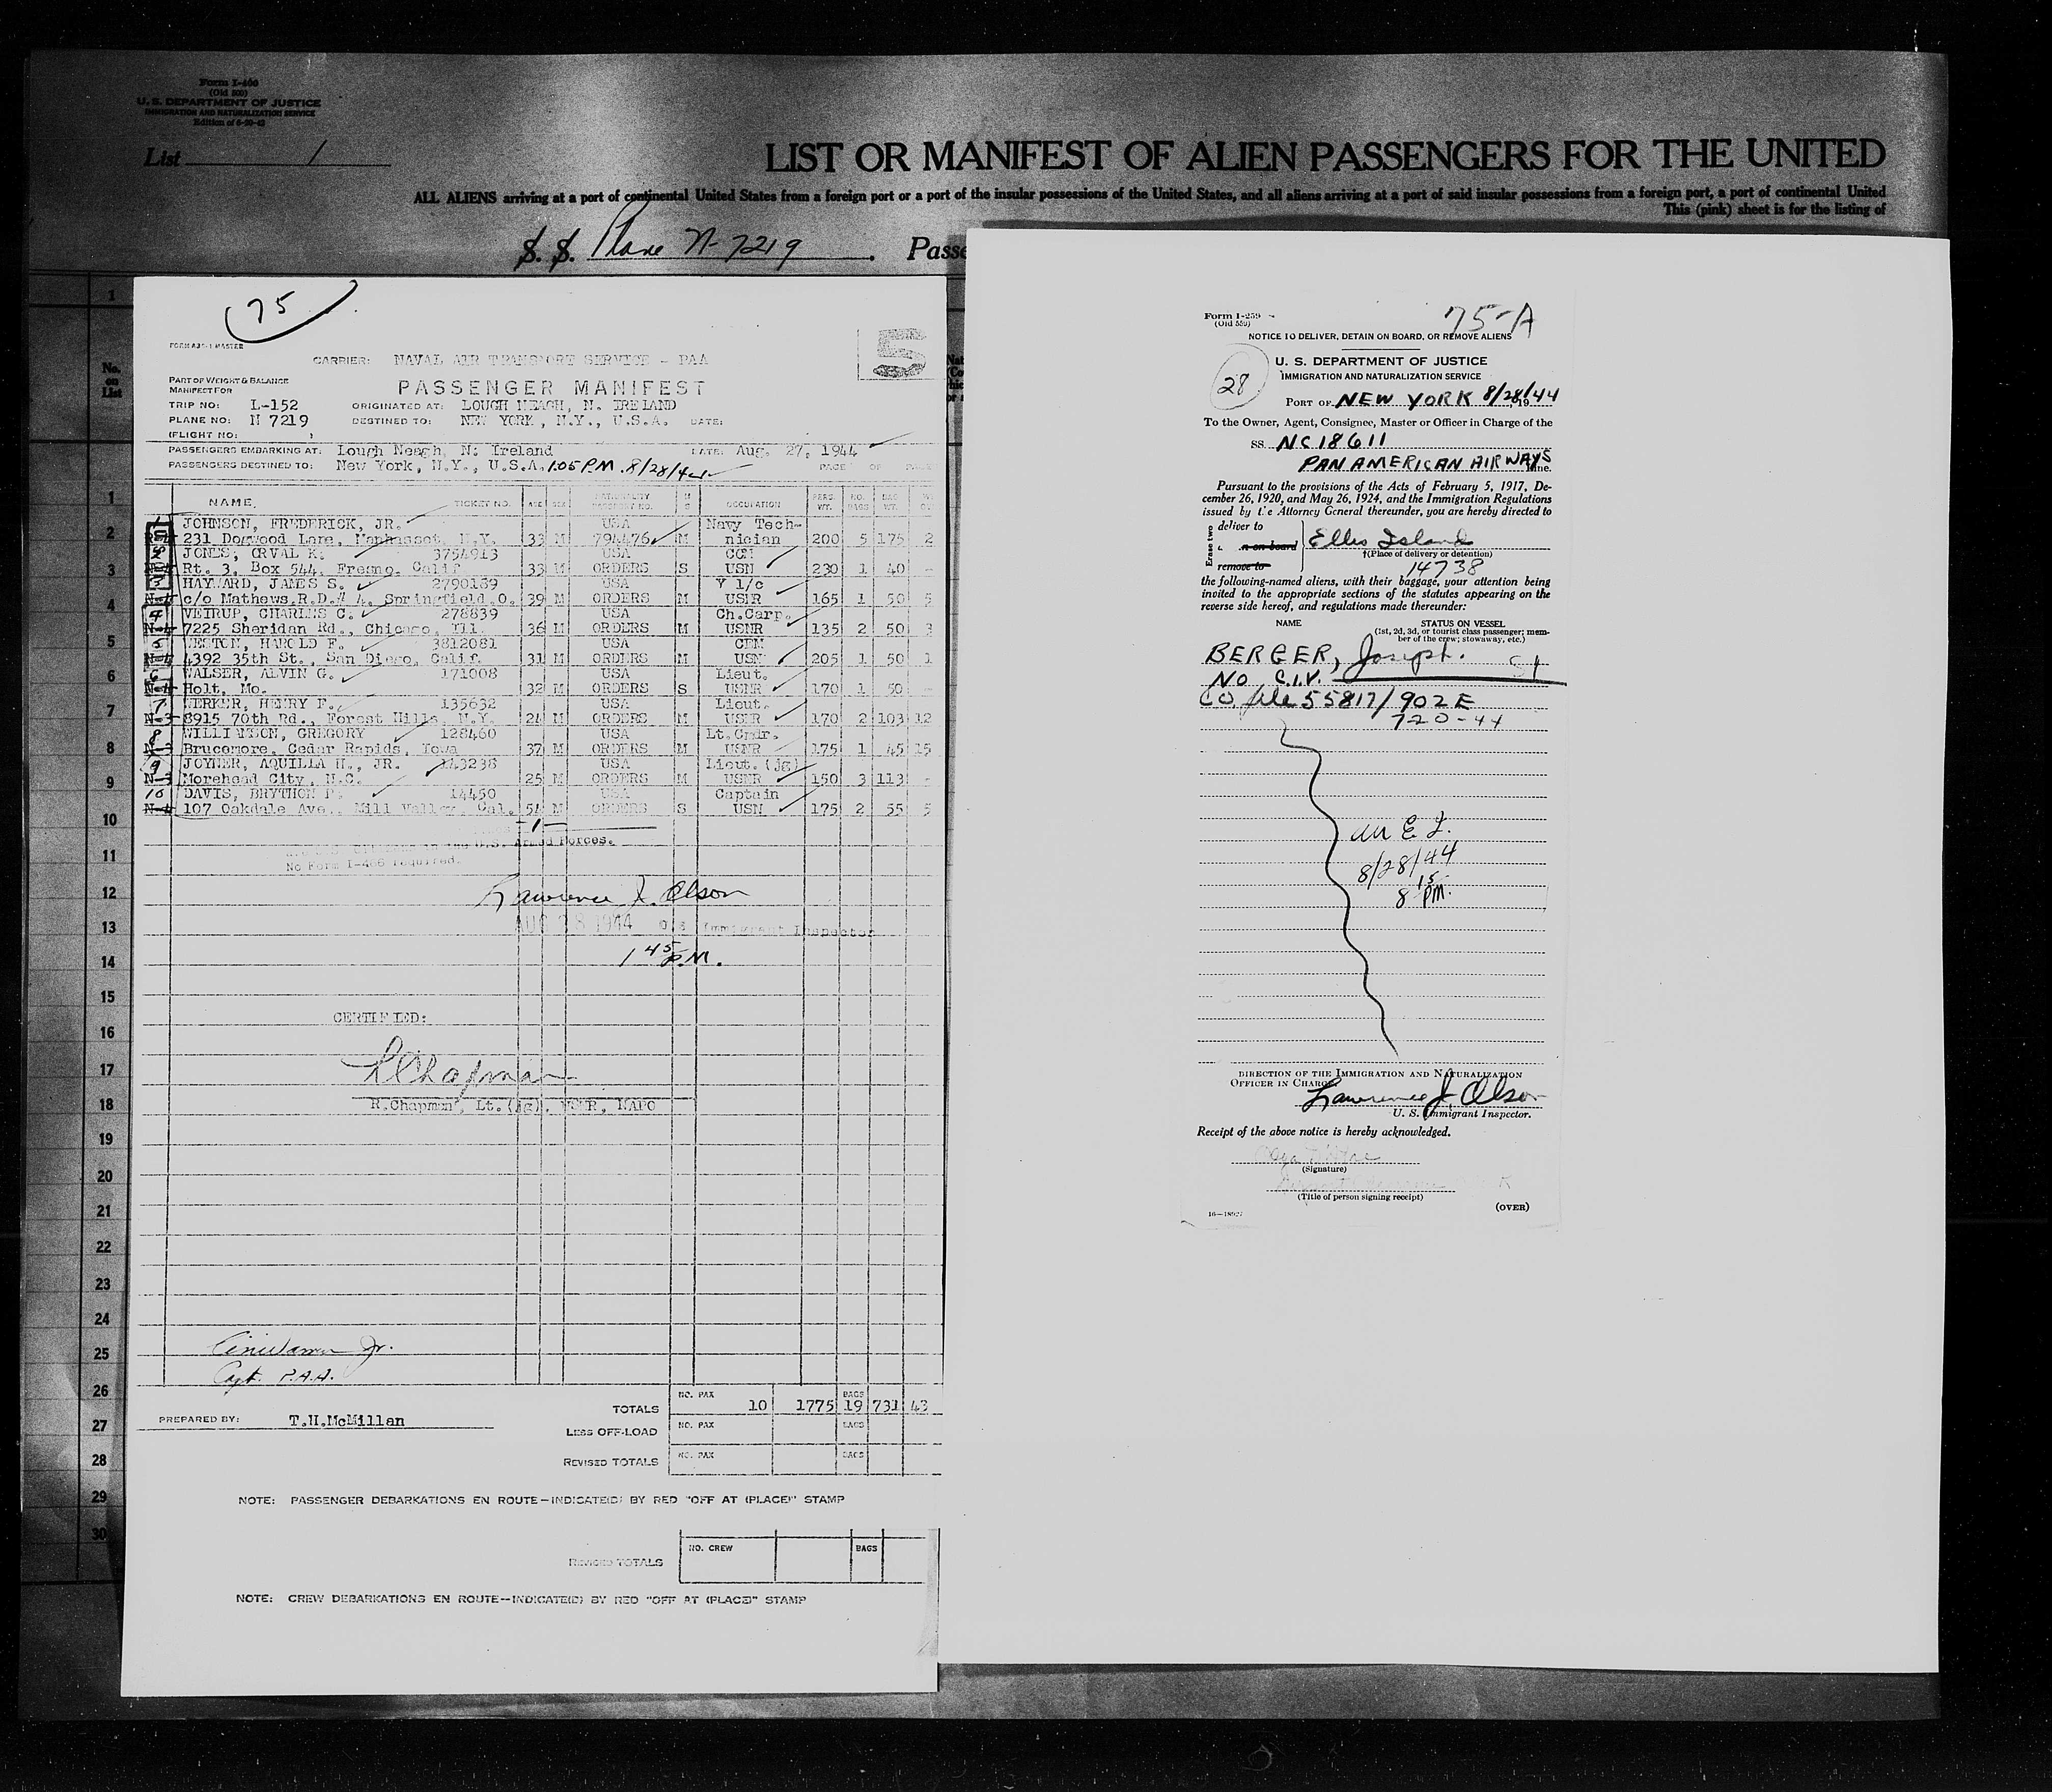 Form I-466
(Old 500)
U. S. DEPARTMENT OF JUSTICE
IMMIGRATION AND NATURALIZATION SERVICE
List 1
LIST OR MANIFEST OF ALIEN PASSENGERS FOR THE UNITED
ALL ALIENS arriving at a port of continental United States from a foreign port or a port of the insular possessions of the United States, and all aliens arriving at a port of said insular possessions from a foreign port, a port of continental United
This (pink) sheet is for the listing of
S. S. Plane N-7219. Passe
No. on List
75
5
CARRIER: NAVAL AIR TRANSPORT SERVICE - PAA
PART OF WEIGHT & BALANCE
MANIFEST FOR
PASSENGER MANIFEST
TRIP NO: L-152 ORIGINATED AT: LOUGH NEAGH, N. IRELAND
PLANE NO: N 7219 DESTINED TO: NEW YORK, N.Y., U.S.A. DATE:
(FLIGHT NO: )
PASSENGERS EMBARKING AT: Lough Neagh, N. Ireland DATE: Aug. 27, 1944
PASSENGERS DESTINED TO: New York, N.Y., U.S.A. 1:05 P.M. 8/28/44 PAGE OF PAGES
NAME TICKET NO. AGE SEX NATIONALITY PASSPORT NO. M S OCCUPATION PERS. WT. NO. BAGS BAG WT.
1 JOHNSON, FREDERICK, JR. USA Navy Tech-
231 Dogwood Lane, Manhasset, N.Y. 33 M 794476 M nician 200 5 175 2
2 JONES, ORVAL K. 3754913 USA CCM
Rt. 3, Box 544, Fresno, Calif. 33 M ORDERS S USN 230 1 40 -
3 HAYWARD, JAMES S. 2790189 USA Y 1/c
c/o Mathews, R.D.# 4, Springfield, O. 39 M ORDERS M USNR 165 1 50 5
4 VEIRUP, CHARLES C. 278839 USA Ch.Carp.
7225 Sheridan Rd., Chicago, Ill. 36 M ORDERS M USNR 135 2 50 3
5 WESTON, HAROLD F. 3812081 USA CEM
4392 35th St., San Diego, Calif. 31 M ORDERS M USN 205 1 50 1
6 WALSER, ALVIN G. 171008 USA Lieut.
Holt, Mo. 32 M ORDERS S USNR 170 1 50 -
7 WERKER, HENRY F. 135632 USA Lieut.
8915 70th Rd., Forest Hills, N.Y. 24 M ORDERS M USNR 170 2 103 12
8 WILLIAMSON, GREGORY 128460 USA Lt.Cmdr.
Brucemore, Cedar Rapids, Iowa 37 M ORDERS M USNR 175 1 45 15
9 JOYNER, AQUILLA H., JR. 143238 USA Lieut.(jg)
Morehead City, N.C. 25 M ORDERS M USNR 150 3 113 -
10 DAVIS, BRYTHON P. 14450 USA Captain
107 Oakdale Ave., Mill Valley, Cal. 54 M ORDERS S USN 175 2 55 5
U.S. Armed Forces.
No Form I-466 required.
Lawrence J. Olson
AUG 28 1944 U.S. Immigrant Inspector
1 45 P.M.
CERTIFIED:
R Chapman
R.Chapman, Lt.(jg). USNR, NAPO
Jr.
Capt. P.A.A.
TOTALS NO. PAX 10 1775 BAGS 19 731 43
PREPARED BY: T.H.McMillan
LESS OFF-LOAD NO. PAX BAGS
REVISED TOTALS NO. PAX BAGS
NOTE: PASSENGER DEBARKATIONS EN ROUTE—INDICATE(D) BY RED "OFF AT (PLACE)" STAMP
REVISED TOTALS NO. CREW BAGS
NOTE: CREW DEBARKATIONS EN ROUTE—INDICATE(D) BY RED "OFF AT (PLACE)" STAMP
1
2
3
4
5
6
7
8
9
10
11
12
13
14
15
16
17
18
19
20
21
22
23
24
25
26
27
28
29
30
Form I-259
(Old 559)
75-A
NOTICE TO DELIVER, DETAIN ON BOARD, OR REMOVE ALIENS
28
U. S. DEPARTMENT OF JUSTICE
IMMIGRATION AND NATURALIZATION SERVICE
PORT OF NEW YORK 8/28/1944
To the Owner, Agent, Consignee, Master or Officer in Charge of the
SS. NC18611
PAN AMERICAN AIRWAYS Line.
Pursuant to the provisions of the Acts of February 5, 1917, De-
cember 26, 1920, and May 26, 1924, and the Immigration Regulations
issued by the Attorney General thereunder, you are hereby directed to
Erase two
deliver to
n on board
remove to
Ellis Island
†(Place of delivery or detention)
14738
the following-named aliens, with their baggage, your attention being
invited to the appropriate sections of the statutes appearing on the
reverse side hereof, and regulations made thereunder:
NAME STATUS ON VESSEL
(1st, 2d, 3d, or tourist class passenger; mem-
ber of the crew; stowaway, etc.)
BERGER, Joseph.
NO C.I.V.
CO file 55817/902E
720-44
arr E I.
8/28/44
8 15 PM.
DIRECTION OF THE IMMIGRATION AND NATURALIZATION
OFFICER IN CHARGE
Lawrence J. Olson
U. S. Immigrant Inspector.
Receipt of the above notice is hereby acknowledged.
(Signature)
(Title of person signing receipt)
(OVER)